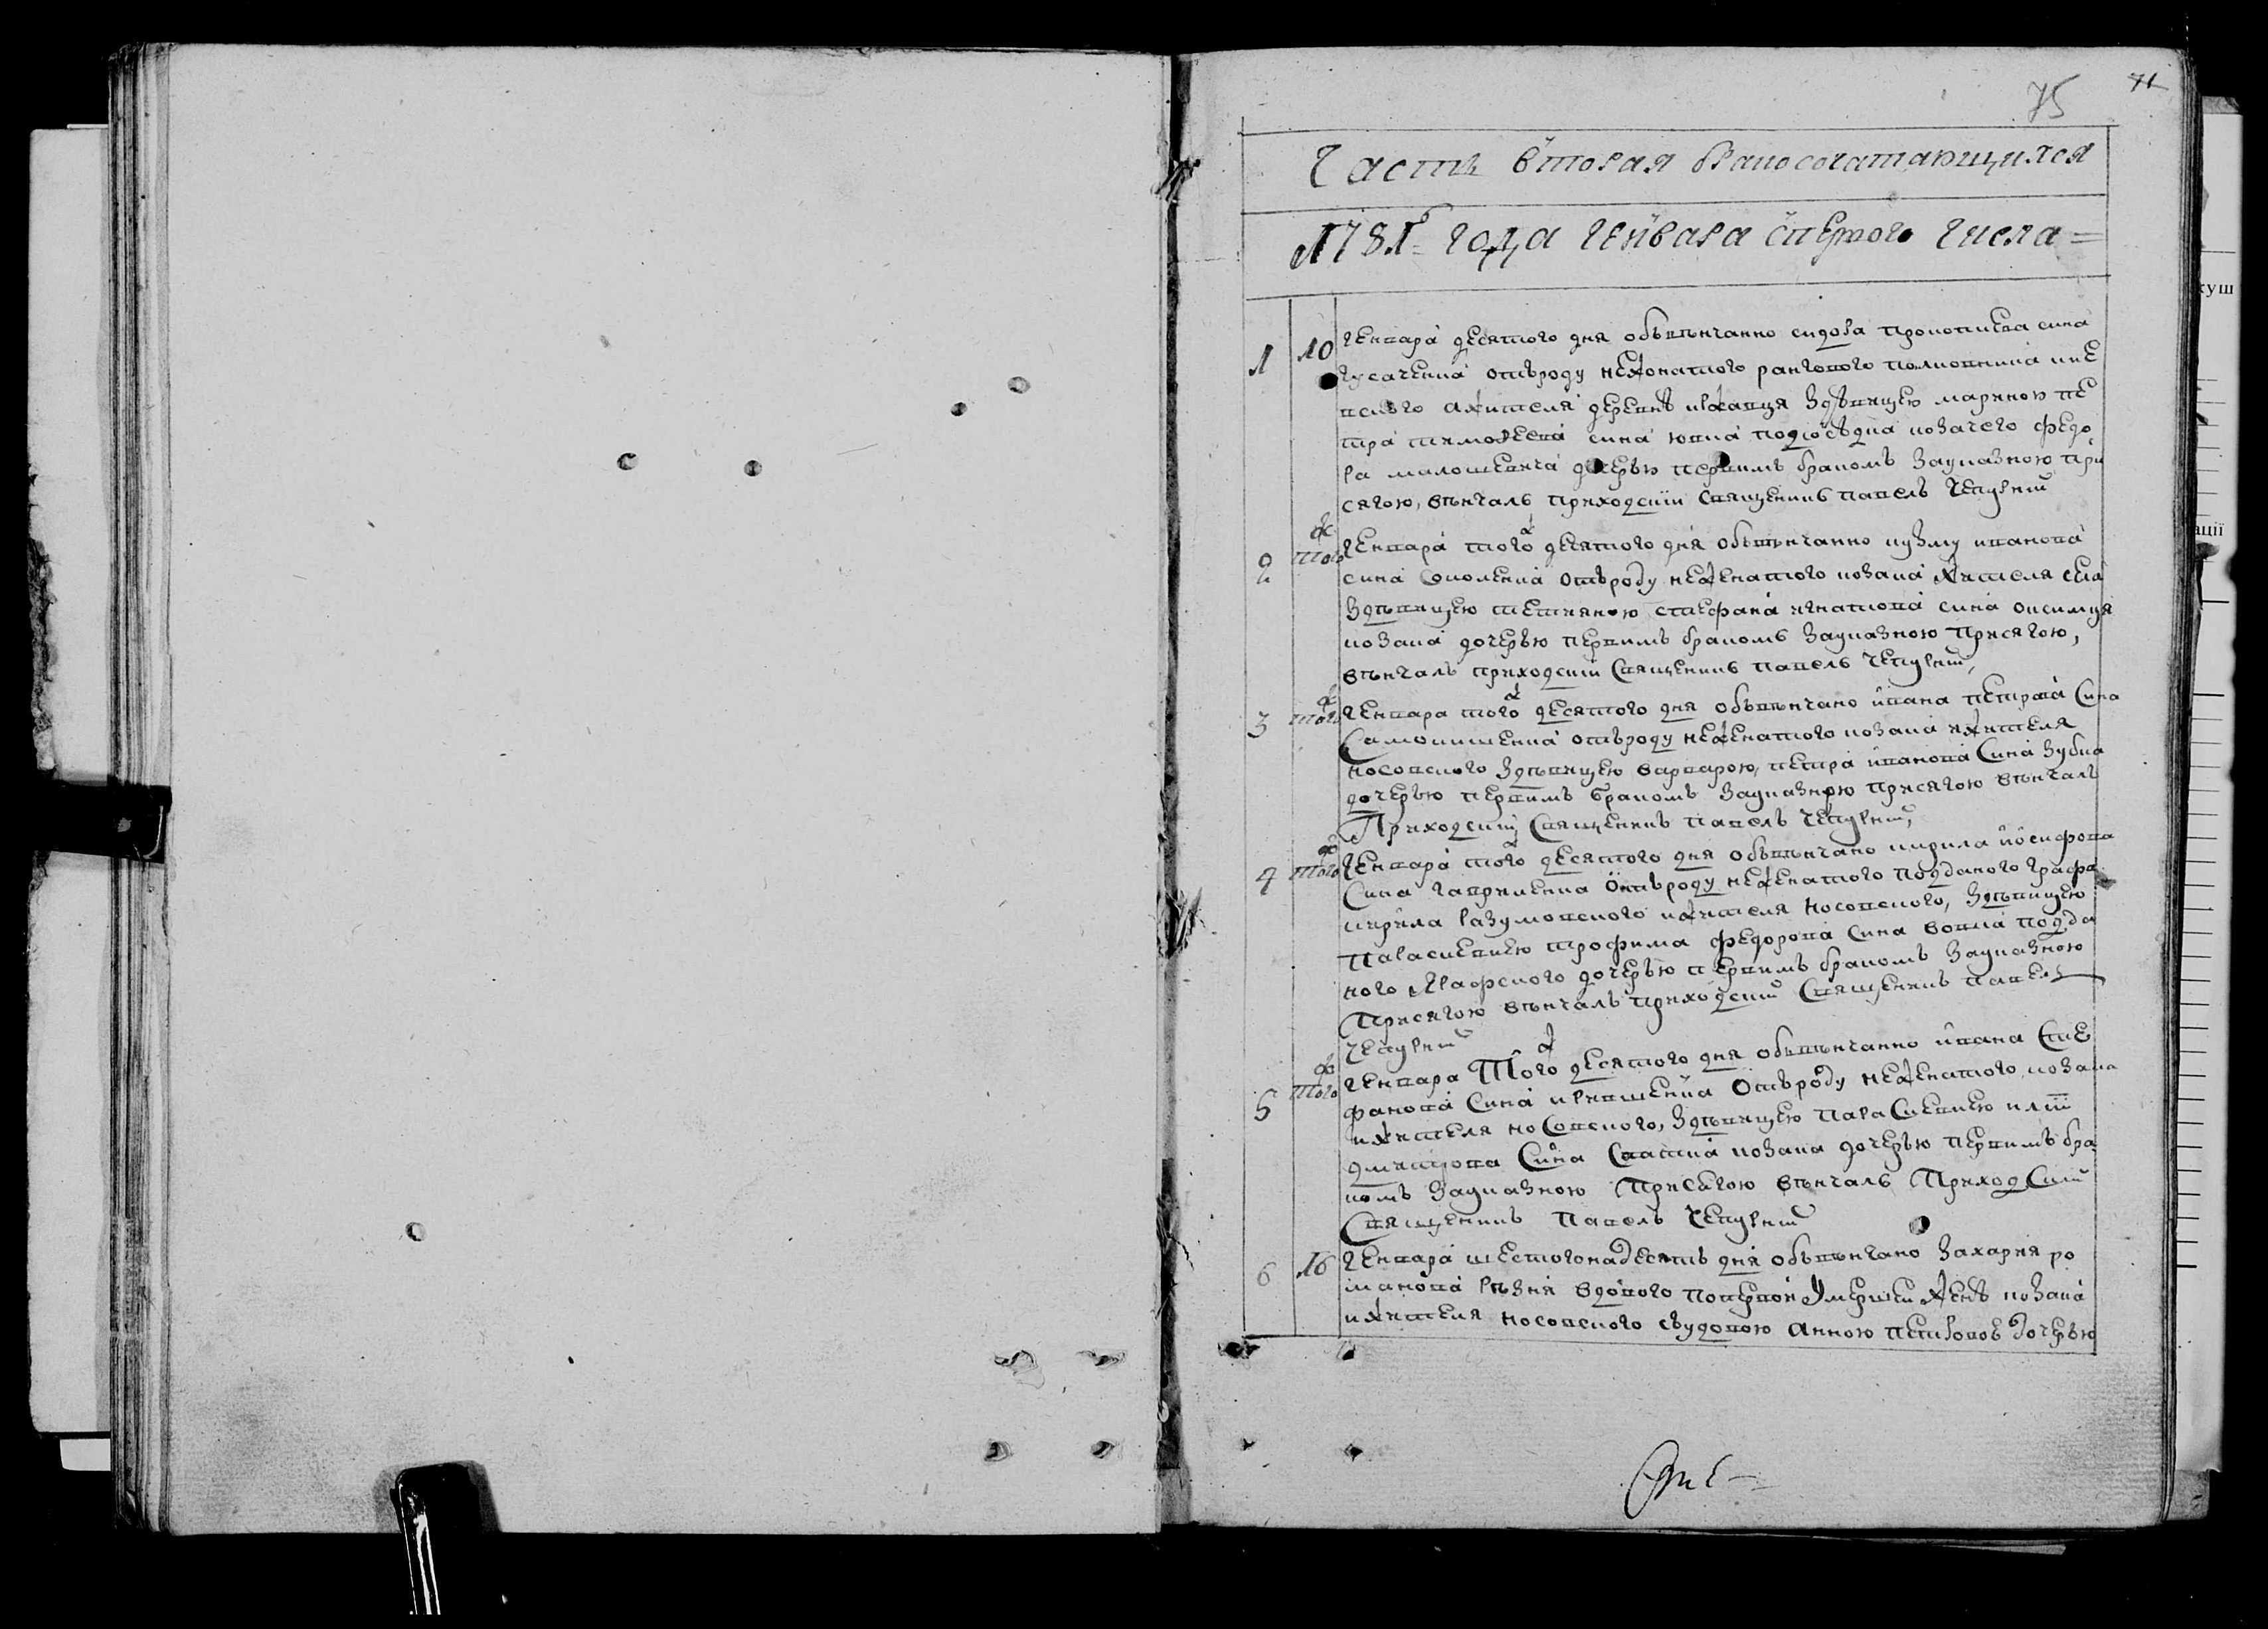 75 71
Часть вторая бракосочатающихся
1781 года генваря с первого числа =
1 10 генвара десятого дня обвѣнчанно сидора прокопиева сина
гусаченка отвроду нежонатого рангового полковника кие
вского жителя деревнѣ ... здѣвицею мариною пе
тра тимофеева сина юпка подсосѣдка козачего федо
ра малошевича дочерью первимъ бракомъ зауказною при
сягою, вѣнчалъ приходский священникъ павелъ чепурній
2 тогож генвара тогож десятого дня обвѣнчанно кузму иванова
сина соколенка отвроду неженатого козака жителя сека
здѣвицею тетяною стефана игнатова сина онсимця
козака дочерью первимъ бракомъ зауказною присягою,
вѣнчалъ приходский священникъ павелъ чепурній,
3 тогож генвара тогож десятого дня обвѣнчано ивана петрова сина
самокишенка отвроду неженатого козака и жителя
носовского здѣвицею варварою, петра иванова сина зубка
дочерью первимъ бракомъ зауказною присягою вѣнчалъ
приходский священикъ павелъ чепурній,
4 тогож генвара тогож десятого дня обвѣнчано кирила иосифова
сина гавриленка отвроду неженатого подданого графа
кирила разумовского и жителя носовского, здѣвицею
параскевиею трофима федорова сина вовка подда
ного графского дочерью первимъ бракомъ зауказною
присягою вѣнчалъ приходский священикъ павелъ
чепурній
5 тогож генвара тогож десятого дня обвѣнчанно ивана сте
фанова сина ... отвроду неженатого козака
и жителя носовского, здѣвицею параскевиею ...
дмитрова сина ... козака дочерью первимъ бра
комъ зауказною присягою вѣнчалъ приходский
священникъ павелъ чепурній
6 16 генвара шестогонадесять дня обвѣнчано захария ро
манова рѣзня вдового попервой умершей женѣ козака
и жителя носовского свудовою анною петровою дочерью